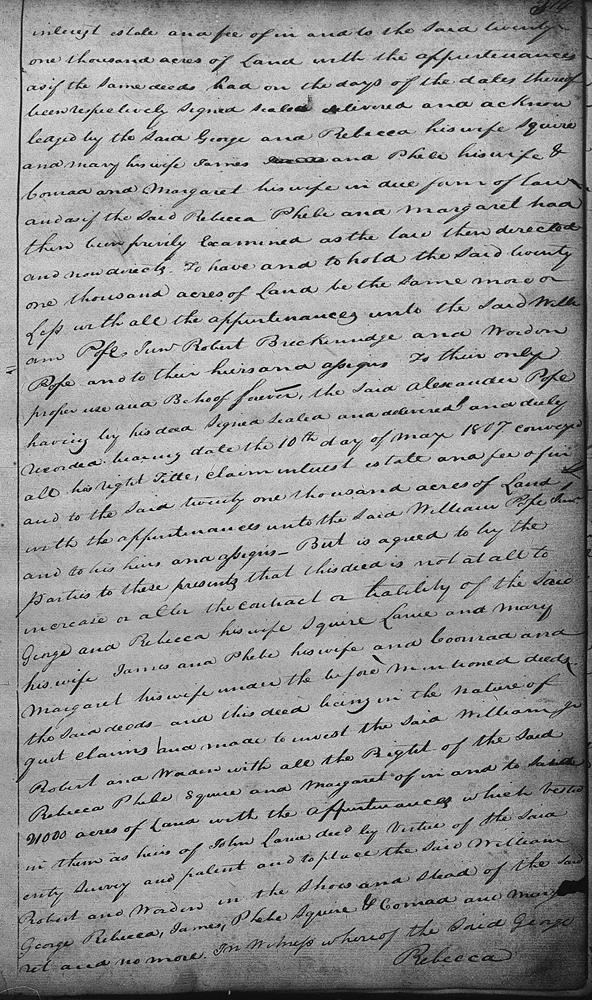 interest estate and fee of in and to the said twenty
one thousand acres of Land with the appurtenances
as if the same deeds had on the days of the dates thereof
been respectively signed sealed delivered and acknow
ledged by the said George and Rebecca his wife Squire
and mary his wife James and Phebe his wife &
Conrad and Margaret his wife in due form of law
and as if the said Rebecca Phebe and margaret had
then been privily Examined as the law then directed
and now directs. To have and to hold the said twenty
one thousand acres of Land be the same more or
Less with all the appurtenances unto the said Willi
am Pope Junr Robert Breckenridge and Wordon
Pope and to their heirs and assigns To their only
proper use and Behoof forever, the said Alexander Pope
having by his deed signed sealed and delivered and duly
recorded bearing date the 10th day of may 1807 conveyd
all his right Title, claim interest estate and fee of in
and to the said twenty one thousand acres of Land
with the appurtenances unto the said William Pope Junr
and to his heirs and assigns - But is agreed to by the
parties to these presents that this deed is not at all to
increase or alter the contract or liability of the said
George and Rebecca his wife Squire Larue and mary
his wife James and Phebe his wife and Coonrad and
Margaret his wife under the before mentioned deeds
the said deeds and this deed being in the nature of
quit claims and made to invest the said William Jr
Robert and Worden with all the Right of the said
Rebecca Phebe Squire and Margaret of in and to
21000 acres of Land with the appurtenances which vested
in them as heirs of John Larue decd by virtue of the said
entry survey and patent and to place the said William
Robert and Wordon in the shoes and stead of the said
George Rebecca, James, Phebe Squire & Conrad and Marga
ret and no more. In Witness whereof the said George
Rebecca